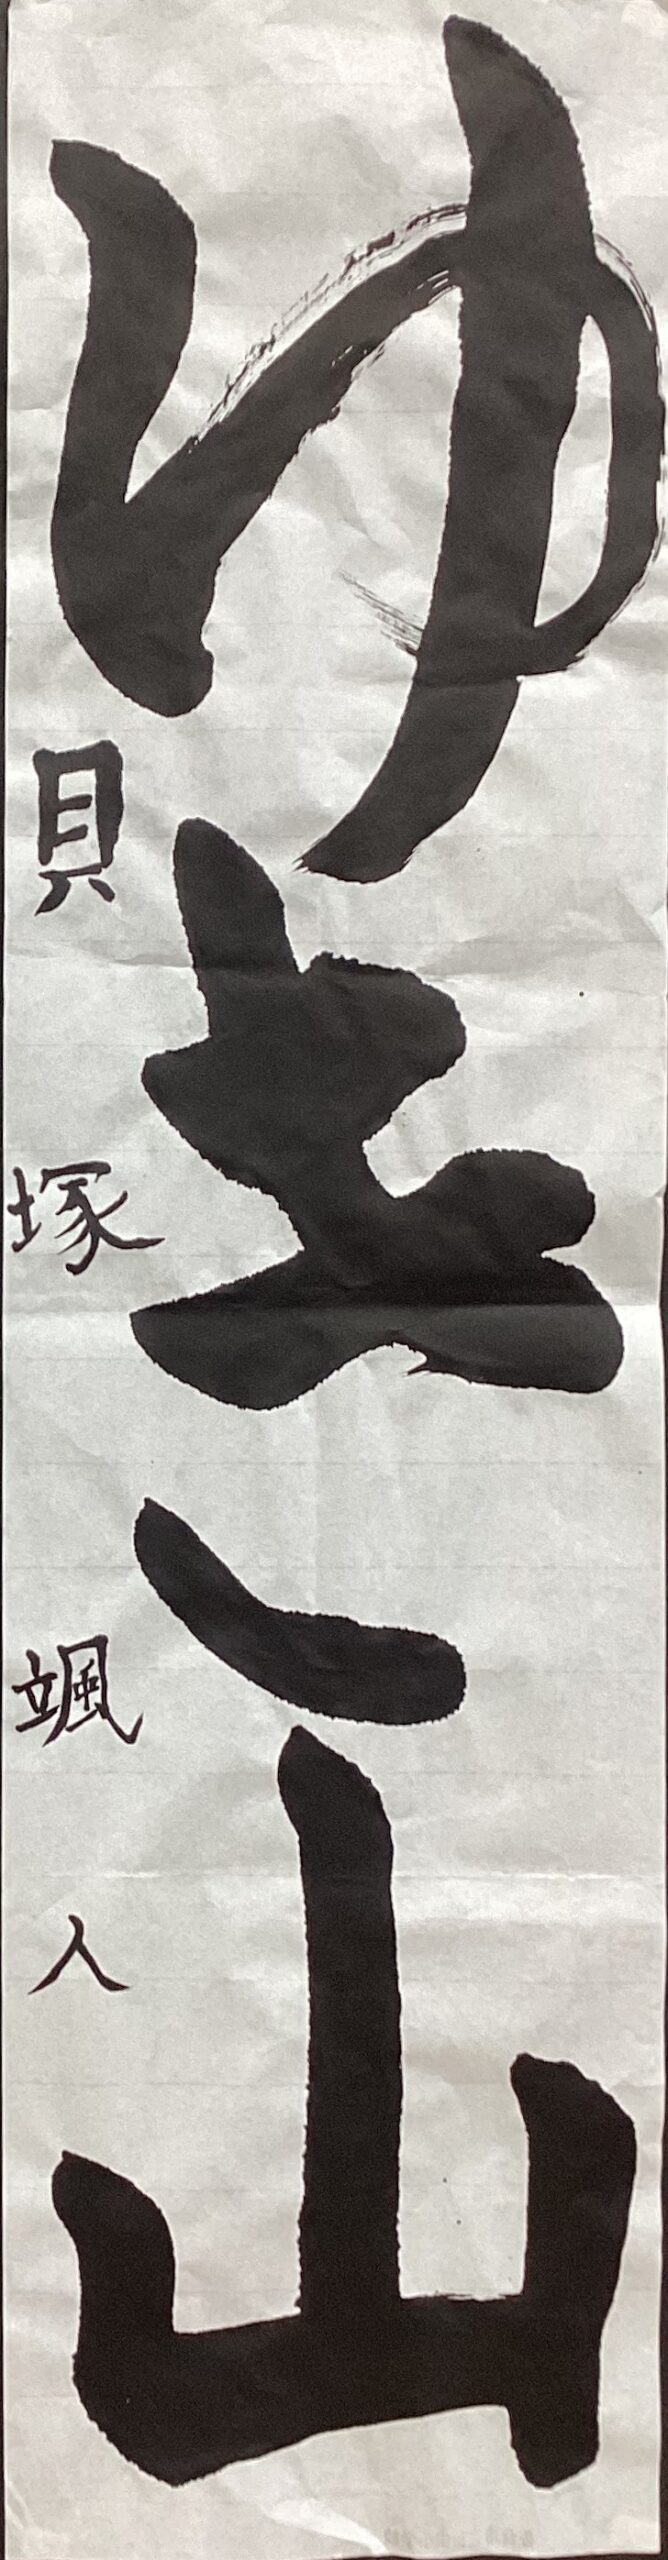 ゆき山
貝塚颯人